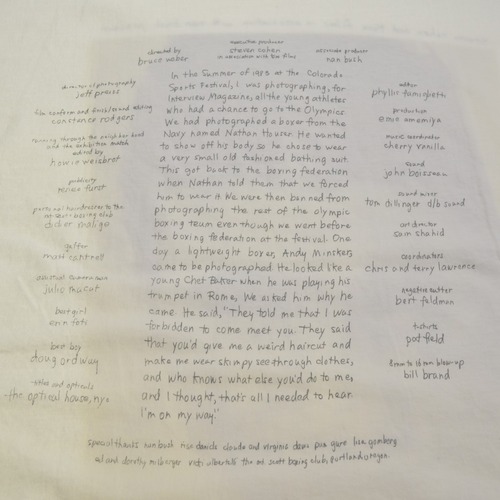 executive producer
directed by
bruce weber
steven cohen
in association with
associate producer
nan bush
director of photography
jeff preiss
film conform and finished editing
constance rodgers
running through the neighborhood
and the exhibition match
edited by
howie weisbrot
publicity
renee furst
personal hairdresser to the
mt. scott boxing club
didier malige
gaffer
matt cantrell
assistant cameraman
julio macat
bar girl
erin foti
best boy
doug ordway
titles and opticals
the optical house, ny.
In the Summer of 1983 at the Colorado
Sports Festival, I was photographing, for
Interview Magazine, all the young athletes
who had a chance to go to the Olympics.
We had photographed a boxer from the
Navy named Nathan Houser. He wanted
to show off his body so he chose to wear
a very small old fashioned bathing suit.
This got back to the boxing federation
when Nathan told them that we forced
him to wear it. We were then banned from
photographing the rest of the olympic
boxing team even though we went before
the boxing federation at the festival. One
day a lightweight boxer, Andy Minsker,
came to be photographed. He looked like a
young Chet Baker when he was playing his
trumpet in Rome. We asked him why he
came. He said, "They told me that I was
forbidden to come meet you. They said
that you'd give me a weird haircut and
make me wear skimpy see through clothes,
and who knows what else you'd do to me,
and I thought, that's all I needed to hear.
I'm on my way."
editor
phyllis famiglietti
production
emie amemiya
music coordinator
cherry vanilla
sound
john boisseau
sound mixer
tom dillinger d/b sound
art director
sam shahid
coordinators
chris and terry lawrence
negative cutter
bert feldman
t-shirts
pat field
8mm to 16mm blow-up
bill brand
special thanks nan bush nick daniels claude and virginia dawn pam gare lisa gomberg
and dorothy the mt. scott boxing club, portland oregon.